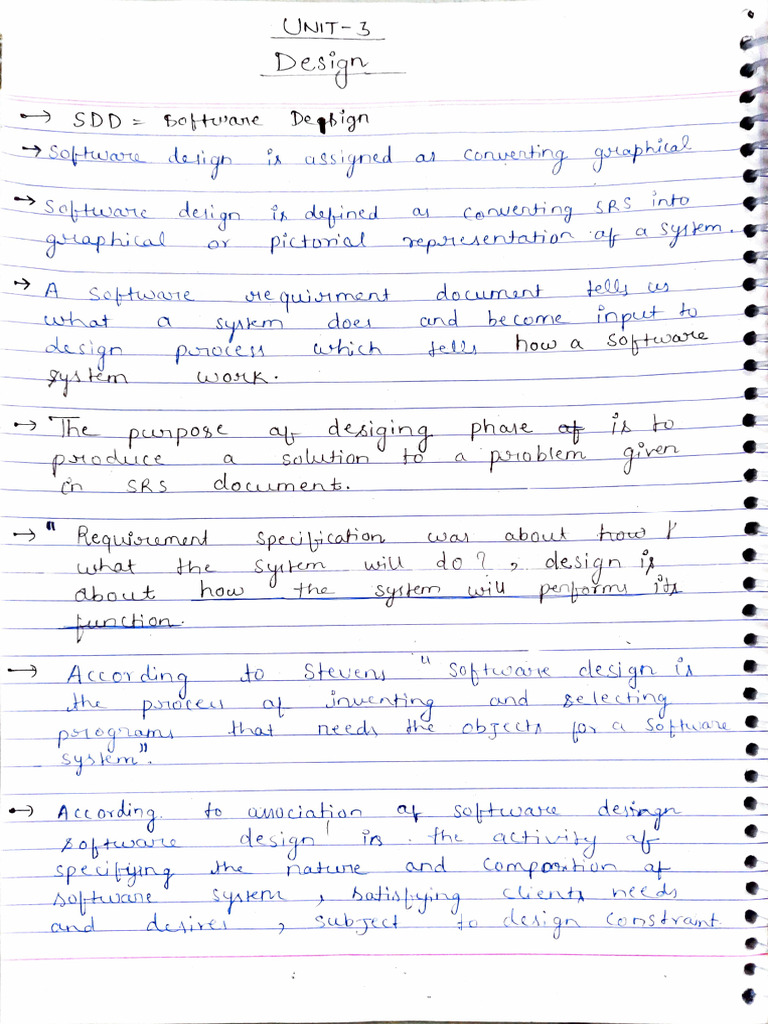 UNIT-3
Design
→ SDD = Software Design
→ Software design is assigned as converting graphical
→ Software design is defined as converting SRS into
graphical or pictorial representation of a system.
→ A software requirment document tells us
what a system does and become input to
design process which tells how a software
system work.
→ The purpose of desiging phase of is to
produce a solution to a problem given
in SRS document.
→ " Requirement specification was about how
what the system will do?, design is
about how the system will performs its
function.
→ According to Stevens "software design is
the process of inventing and selecting
programs that needs the objects for a software
system".
→ According to association of software desingn
software design is the activity of
specifying the nature and composition of
software system, satisfying clients needs
and desires, subject to design constraint.